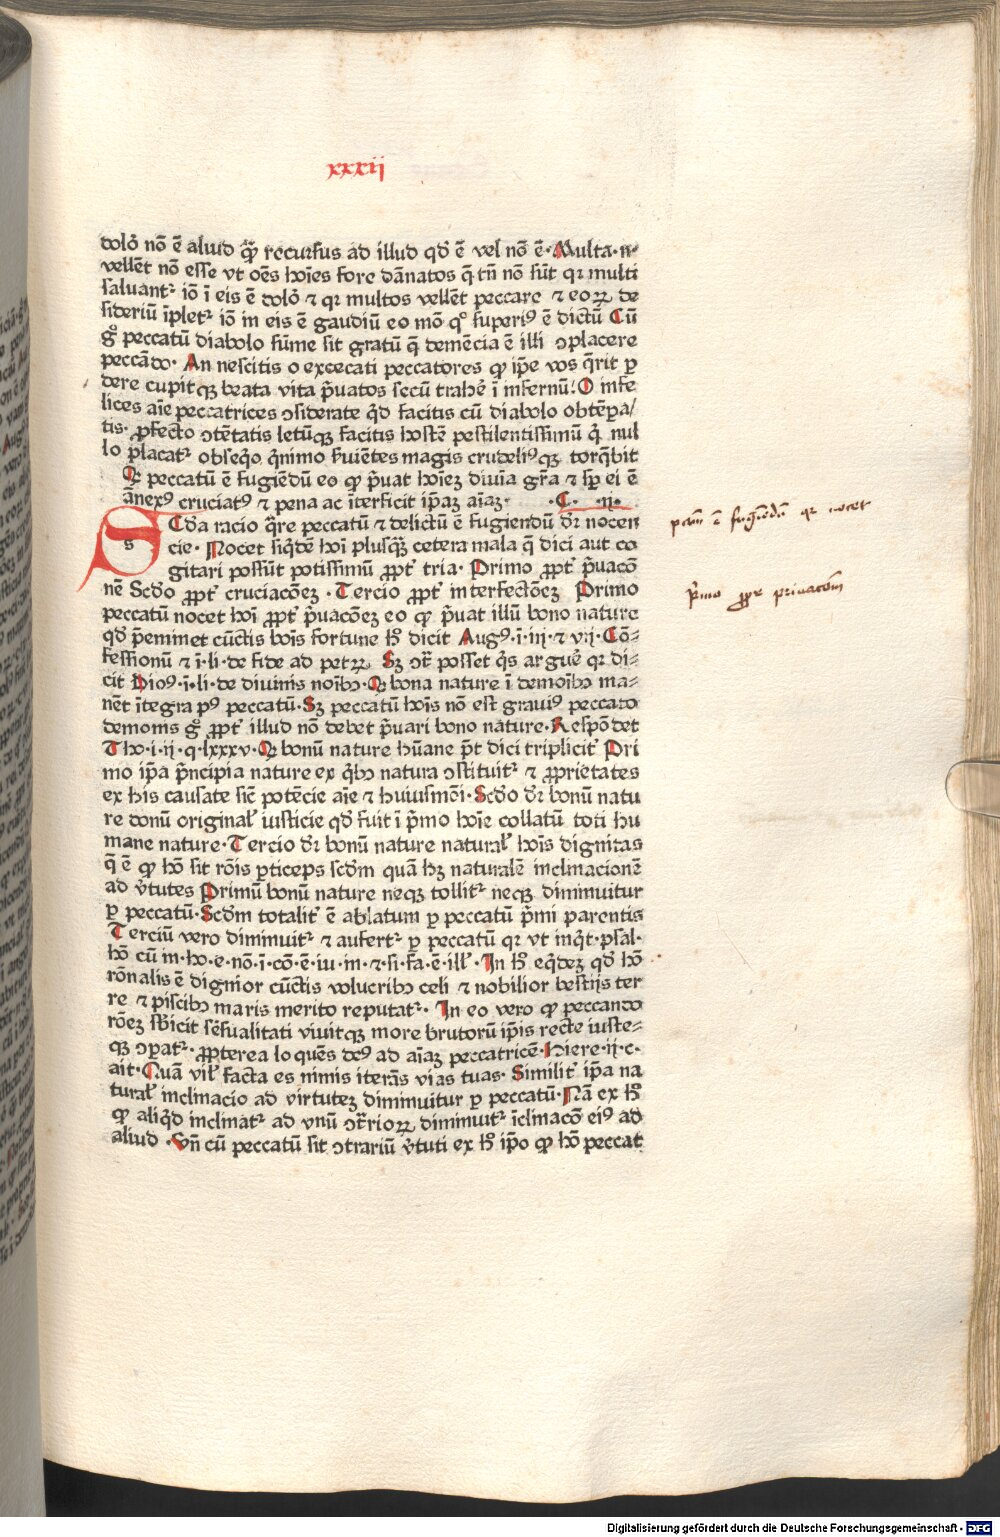 xxxii
dolor̄ nō ē aliud q̄ȝ recursus ad illud qd̄ ē vel nō ē· Multa·n·
vellēt nō esse vt oēs hoīes fore dānatos q̄ tn̄ nō sūt qr multi
saluantᷣ iō ī eis ē dolor̄ ⁊ qr multos vellēt peccare ⁊ eoꝝ de
sideriū īpletᷣ iō in eis ē gaudiū eo mō qᵒ superiꝰ ē dictū Cū
gͦ peccatū diabolo sūme sit gratū q̄ demēcia ē illi ꝯplacere
peccādo· An nescitis o excecati peccatores ꝙ ip̄e vos q̄rit ꝑ
dere cupitqꝫ beata vita p̄uatos secū trahē ī infernū! O infe
lices aīe peccatrices ꝯsiderate qd̄ facitis cū diabolo obtēꝑa/
tis· ꝓfecto ꝯtētatis letūqꝫ facitis hostē pestilentissimū q̄ nul
lo placatᷣ obseq̄o q̄nimo s̄uiētes magis crudeliꝰqꝫ torq̄bit
Qꝛ peccatū ē fugiēdū eo ꝙ p̄uat hoīeꝫ diuīa gr̄a ⁊ sꝑ ei ē
ānexꝰ cruciatꝰ ⁊ pena ac īterficit ip̄aꝫ aīaꝫ· C· ·ii·
s
Scd̄a racio q̄re peccatū ⁊ delictū ē fugiendū dr̄ nocen
cie· Nocet siq̄dē hoī plusq̄ȝ cetera mala q̄ dici aut co
gitari possūt potissimū ꝓpt̄ tria· Primo ꝓpt̄ p̄uacō
nē Scd̄o ꝓpt̄ cruciacōeꝫ · Tercio ꝓpt̄ interfectōeꝫ Primo
peccatū nocet hoī ꝓpt̄ p̄uacōeꝫ eo ꝙ p̄uat illū bono nature
qd̄ p̄eminet cūctis boīs fortune h̄ dicit Augꝰ·ī·iij·⁊ vij·Cō-
fessionū ⁊ ī·li·de fide ad petꝝ· Sꝫ ꝯt̄ posset q̄s arguē qr di-
cit Dioꝰ·ī·li·de diuinis noībꝰ· Qꝛ bona nature ī demoībꝰ ma-
nēt ītegra pꝰ peccatū· Sꝫ peccatū hoīs nō est grauiꝰ peccato
demonis gͦ ꝓpt̄ illud nō debet p̄uari bono nature· Respōdet
Tho·i·ij·q·lxxxv· Qꝛ bonū nature hūane p̄t dici triplicit̄ Pri
mo ip̄a p̄ncipia nature ex q̄bꝰ natura ꝯstituitᷣ ⁊ ꝓprietates
ex his causate sic̄ potēcie aīe ⁊ huiusmōi· Scd̄o dr̄ bonū natu
re donū original̄ iusticie qd̄ fuit ī p̄mo hoīe collatū toti hu
mane nature· Tercio dr̄ bonū nature natural̄ hoīs dignitas
q̄ ē ꝙ hō sit rōis ꝑticeps scd̄m quā hꝫ naturalē inclinacionē
ad v̄tutes Primū bonū nature neqꝫ tollitᷣ neqꝫ diminuitur
ꝑ peccatū· Scd̄m totalit̄ ē ablatum ꝑ peccatū p̄mi parentis
Terciū vero diminuitᷣ ⁊ aufertᷣ ꝑ peccatū qr vt inq̄t·psal·
hō cū in·ho·e·nō·ī·cō·ē·iu·in·⁊·si·fa·ē·ill̄· In h̄ eq̄deꝫ qd̄ hō
rōnalis ē dignior cūctis volucribꝰ celi ⁊ nobilior bestijs ter
re ⁊ piscibꝰ maris merito reputatᷣ· In eo vero ꝙ peccando
rōeꝫ sb̄icit sēsualitati viuitqꝫ more brutorū ip̄is recte iuste-
qꝫ ꝯꝑatᷣ· ꝓpterea loquēs deꝰ ad aīaꝫ peccatricē· Hiere·ij·c·
ait· Quā vil̄ facta es nimis iterās vias tuas· Similit̄ ip̄a na
tural̄ inclinacio ad virtuteꝫ diminuitur ꝑ peccatū· Nā ex h̄
ꝙ aliq̄d inclinatᷣ ad vnū ꝯt̄rioꝝ diminuitᷣ īclinacō eiꝰ ad
aliud · Vn̄ cū peccatū sit ꝯtrariū v̄tuti ex h̄ ip̄o ꝙ hō peccat
pctm̄ ē fugiēdū qr nocet
p̄mo ꝓpt̄ priuacōm
Digitalisierung gefördert durch die Deutsche Forschungsgemeinschaft - DFG